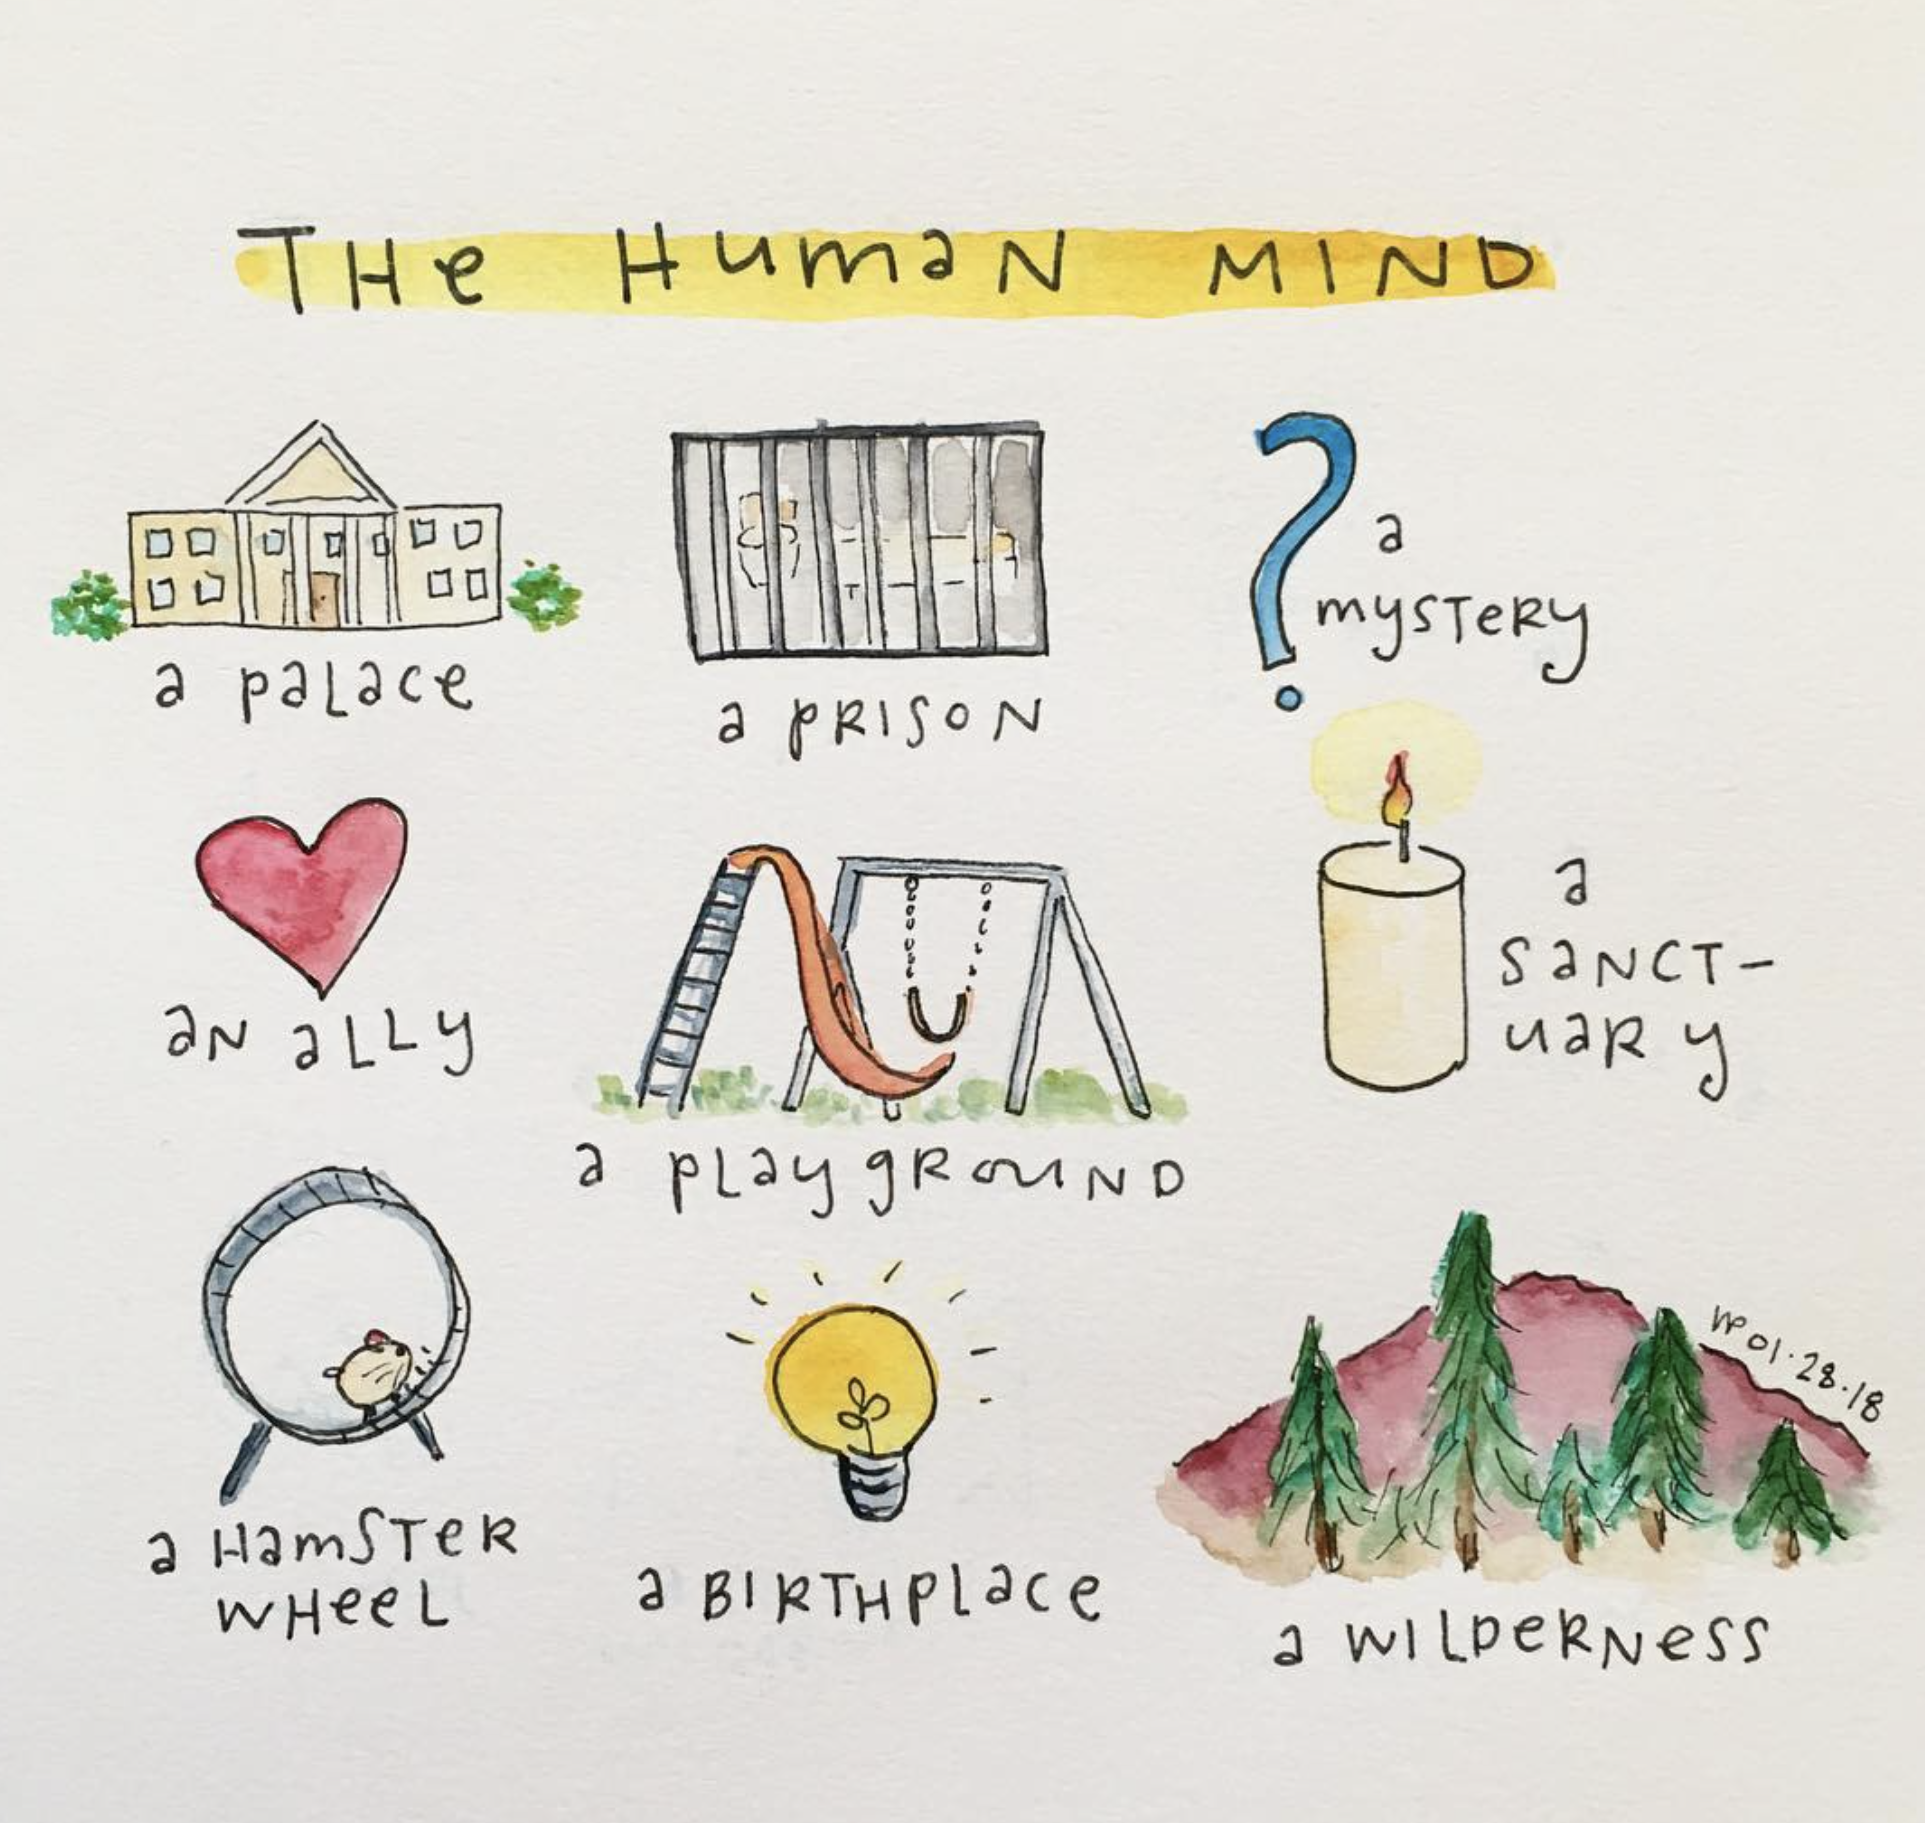 THe HumaN MIND
a palace
a PRISON
a
mysTeRy
aN aLLy
a playgROuND
a
SaNCT-
uaRy
a HamSTeR
WHeeL
a BIRTHplace
a WILDeRNess
WP 01.28.18